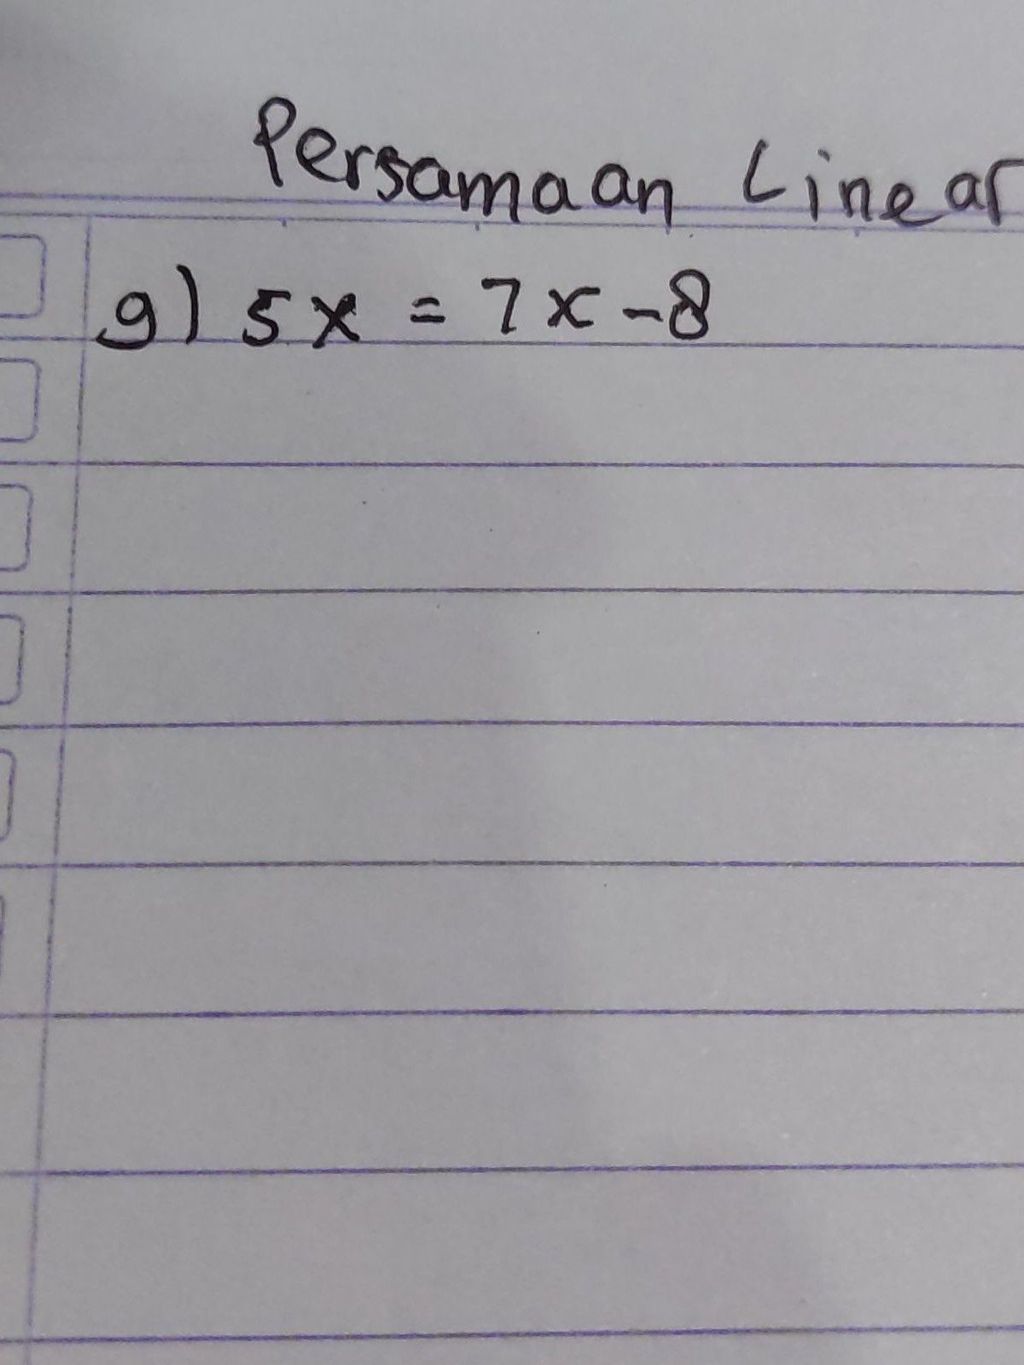 Persamaan Linear
g) 5x = 7x - 8